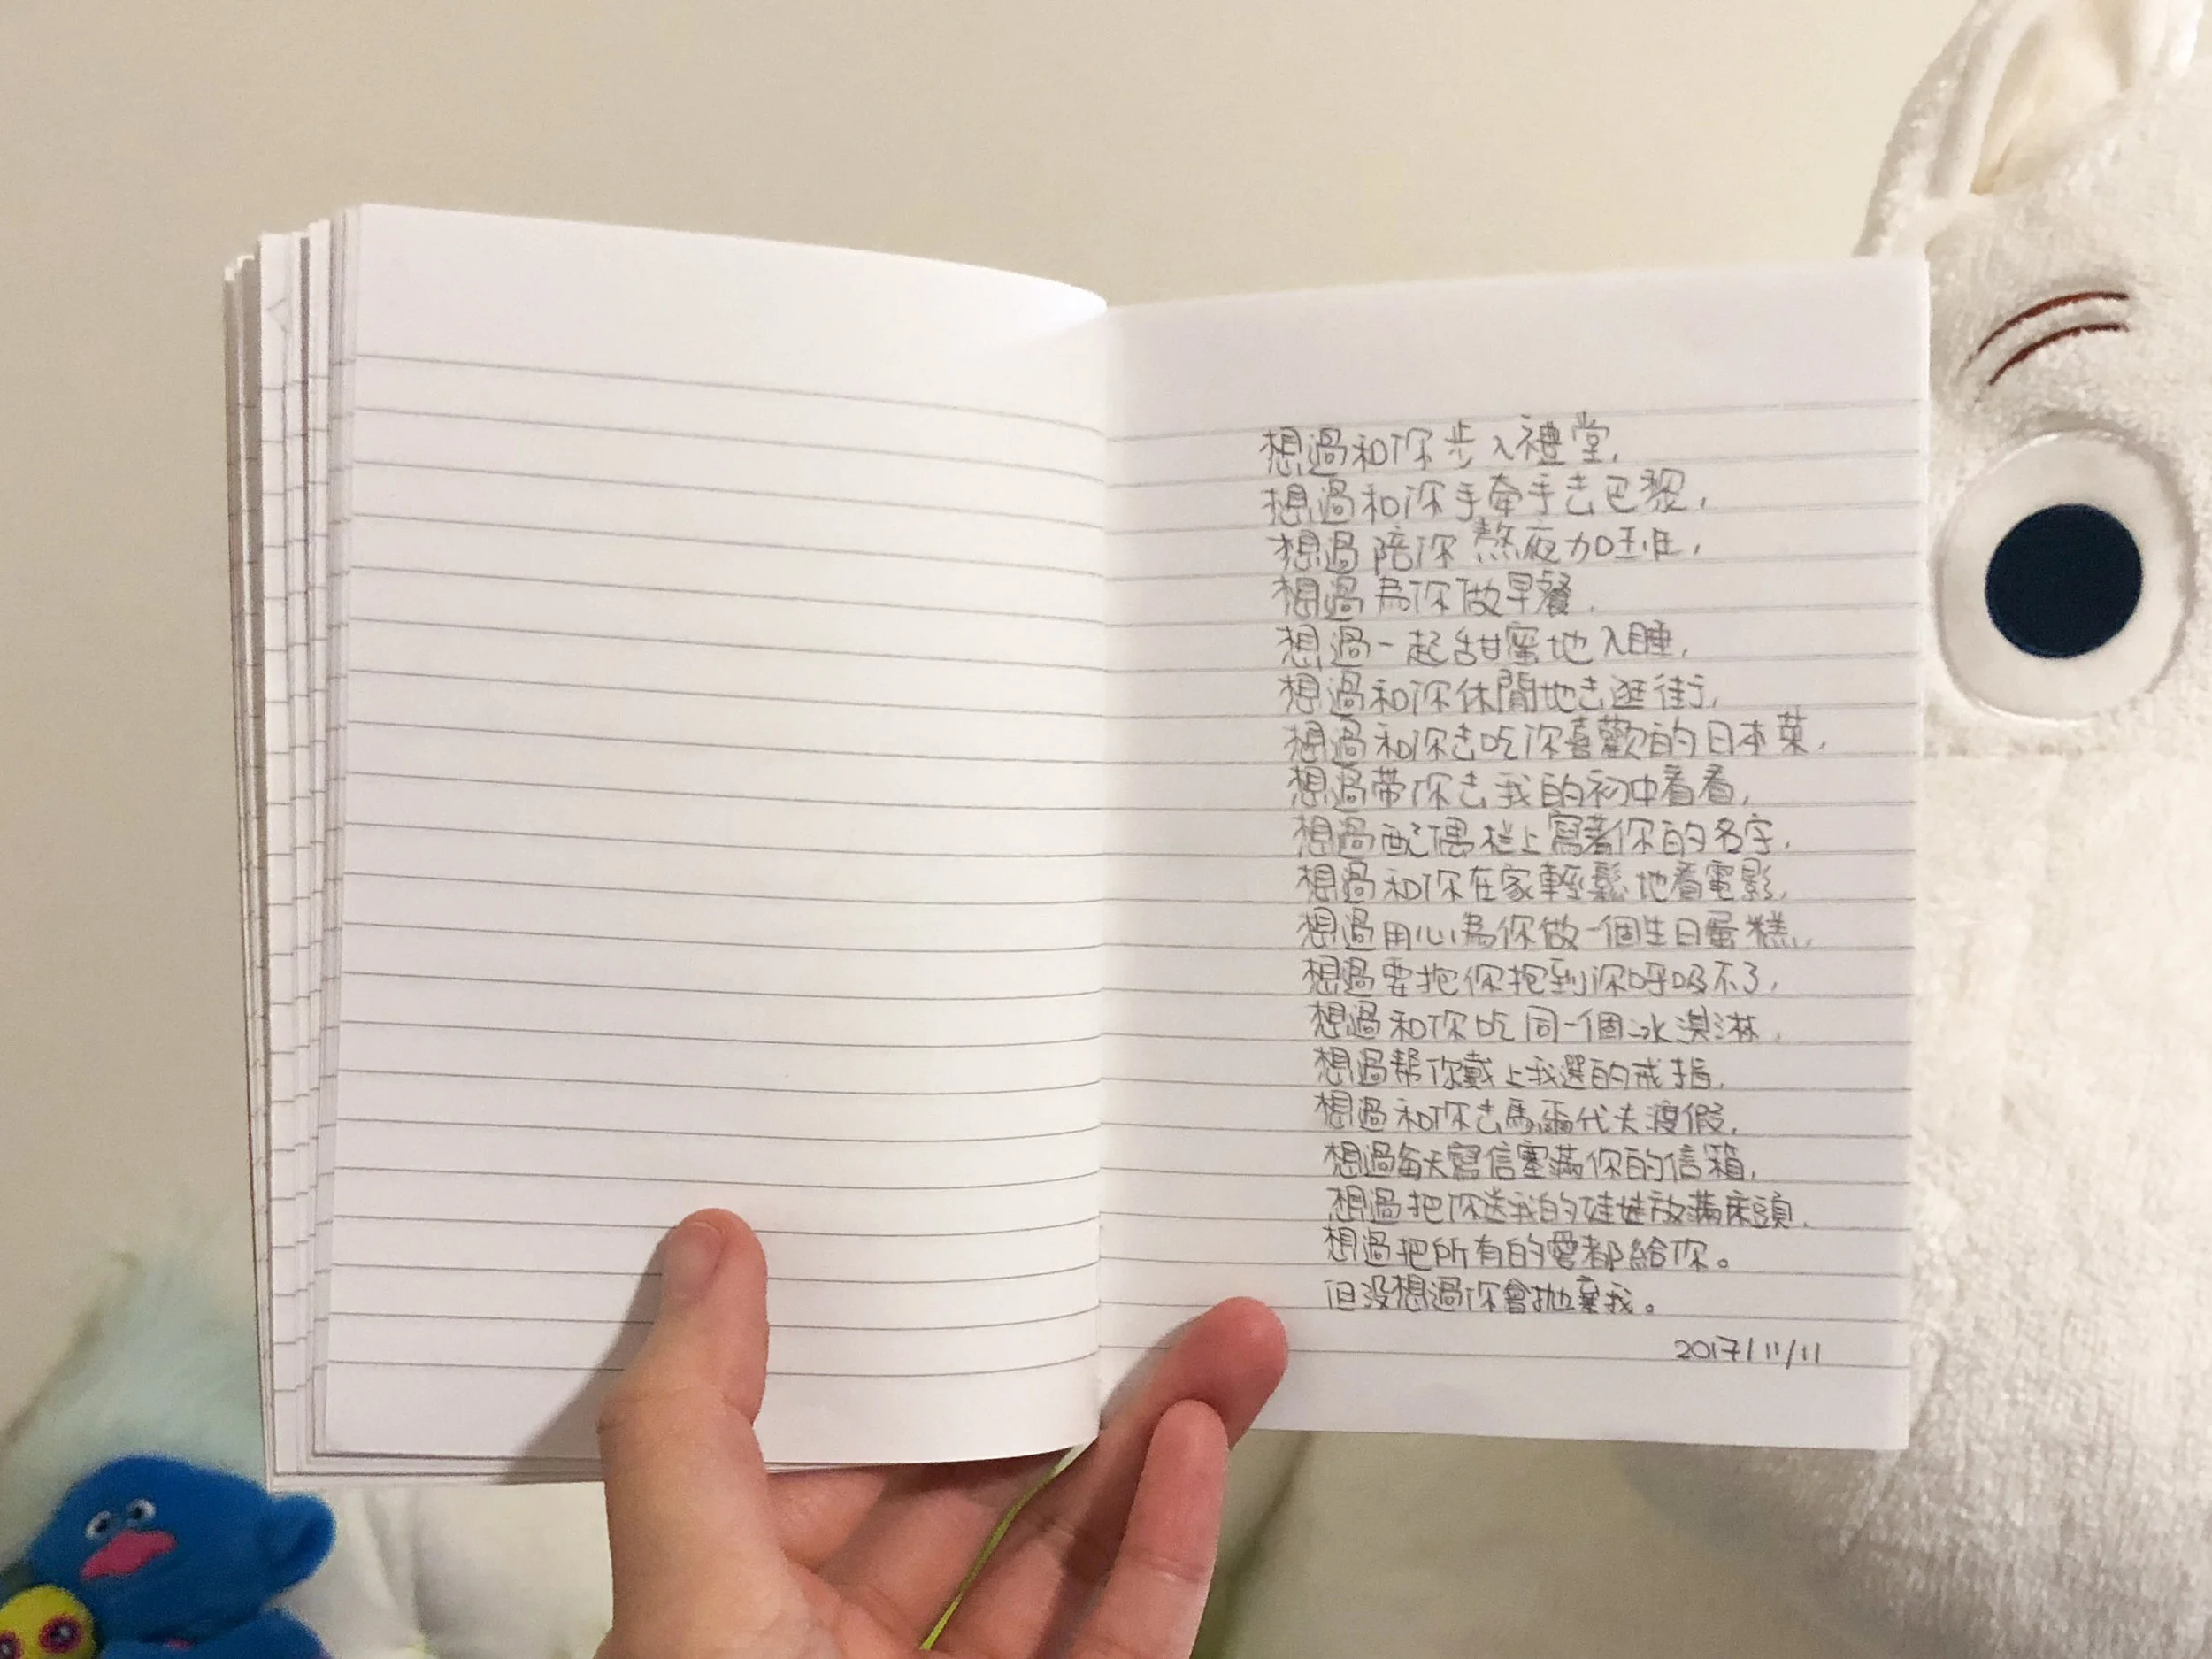 想過和你步入禮堂,
想過和你手牽手去巴黎,
想過陪你熬夜加班,
想過為你做早餐,
想過一起甜蜜地入睡,
想過和你休閒地去逛街,
想過和你去吃你喜歡的日本菜,
想過帶你去我的初中看看,
想過配偶栏上寫著你的名字,
想過和你在家輕鬆地看電影,
想過用心為你做一個生日蛋糕,
想過要抱你抱到你呼吸不了,
想過和你吃同一個冰淇淋,
想過幫你戴上我選的戒指,
想過和你去馬爾代夫渡假,
想過每天寫信塞滿你的信箱,
想過把你送我的娃娃放滿床頭,
想過把所有的愛都給你。
但没想過你會拋棄我。
2017/11/11